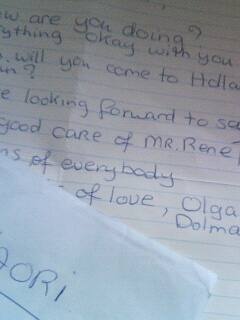 are you doing?
okay with you
will you come to Holla
?
looking forward to s
good care of MR. Rene
of everybody
of love, Olga
Dolma
ORi